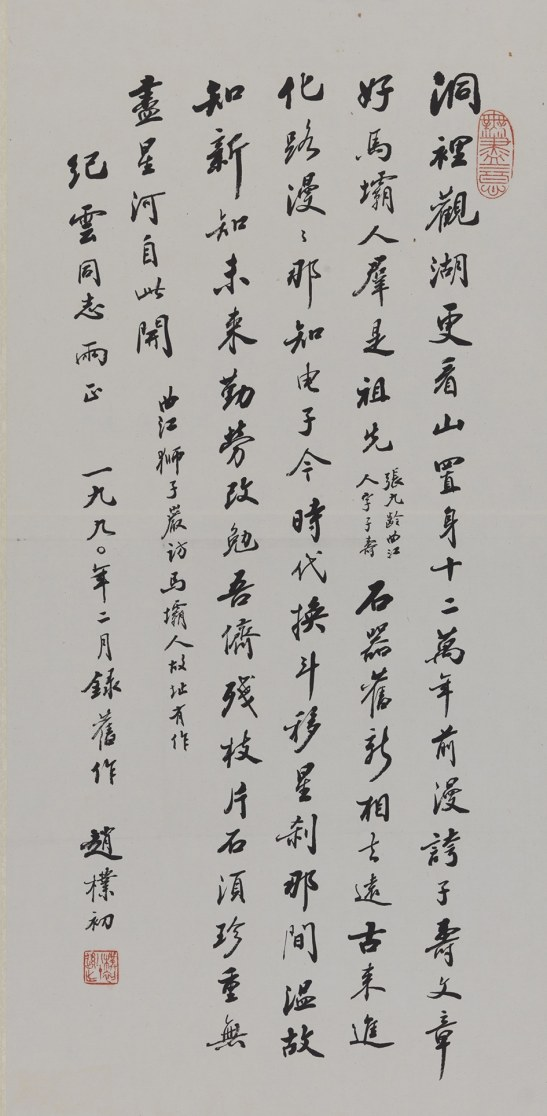 洞裡觀湖更看山置身十二萬年前漫誇子壽文章
好馬壩人羣是祖先
張九齡曲江
人字子壽
石器舊新相去遠古来進
化路漫〻那知电子今時代换斗移星刹那間温故
知新知未来勤勞改勉吾儕殘枝片石須珍重無
盡星河自此開
曲江狮子巖访馬壩人故址有作
紀雲同志兩正
一九九〇年二月録舊作
趙樸初